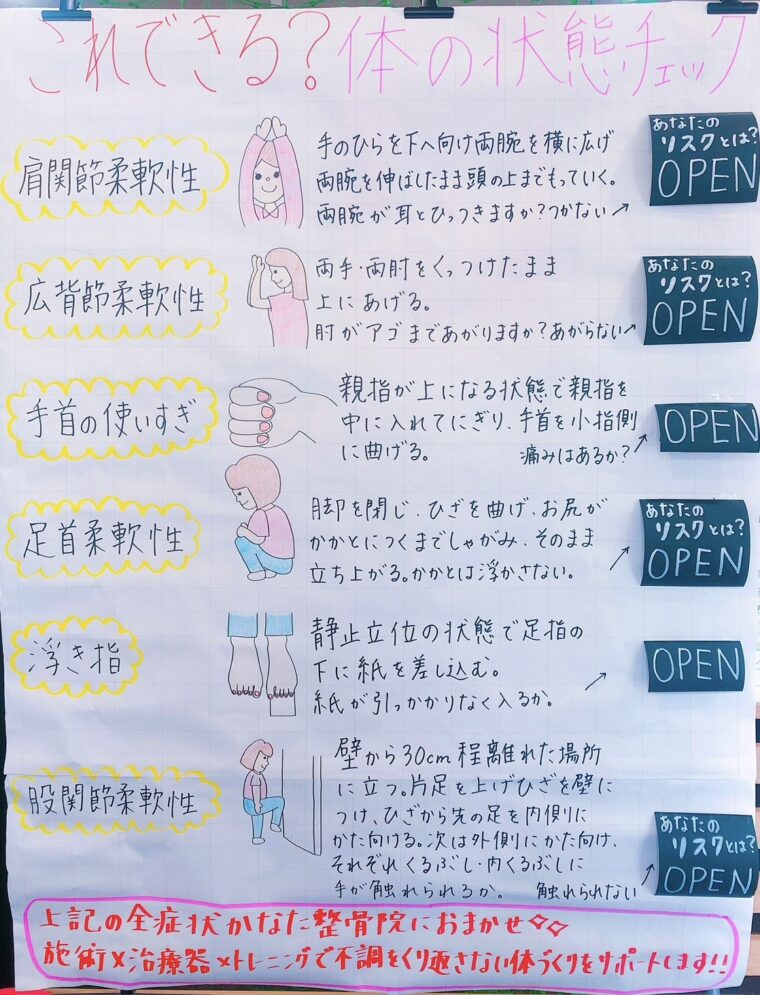 これできる？体の状態チェック
肩関節柔軟性
手のひらを下へ向け両腕を横に広げ
両腕を伸ばしたまま頭の上までもっていく。
両腕が耳とひっつきますか？つかない↗
あなたの
リスクとは？
OPEN
広背節柔軟性
両手・両肘をくっつけたまま
上にあげる。
肘がアゴまであがりますか？あがらない↗
あなたの
リスクとは？
OPEN
手首の使いすぎ
親指が上になる状態で親指を
中に入れてにぎり、手首を小指側
に曲げる。 痛みはあるか？↗
OPEN
足首柔軟性
脚を閉じ、ひざを曲げ、お尻が
かかとにつくまでしゃがみ、そのまま
立ち上がる。かかとは浮かさない。↗
あなたの
リスクとは？
OPEN
浮き指
静止立位の状態で足指の
下に紙を差し込む。
紙が引っかかりなく入るか。↗
OPEN
股関節柔軟性
壁から30cm程離れた場所
に立つ。片足を上げひざを壁に
つけ、ひざから先の足を内側に
かた向ける。次は外側にかた向け、
それぞれくるぶし・内くるぶしに
手が触れられるか。 触れられない↗
あなたの
リスクとは？
OPEN
上記の全症状かなた整骨院におまかせ◇◇
施術×治療器×トレーニングで不調をくり返さない体づくりをサポートします!!